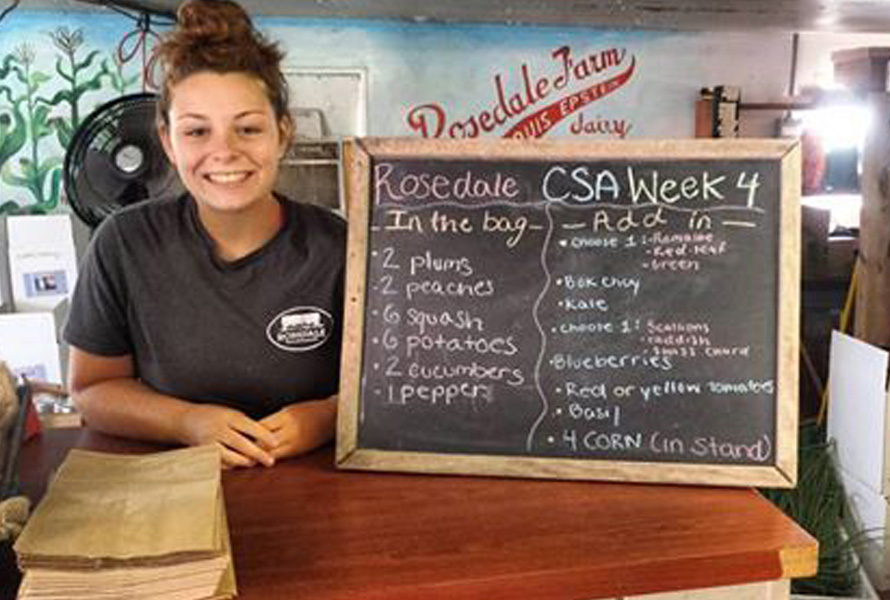 Rosedale Farm
LOUIS EPSTEIN
dairy
Rosedale CSA Week 4
- In the bag -
• 2 plums
• 2 peaches
• 6 squash
• 6 potatoes
• 2 cucumbers
• 1 pepper
- Add in -
• choose 1: - Romaine
- Red leaf
- Green
• Bok choy
• Kale
• choose 1: Scallions
- radish
- Swiss chard
• Blueberries
• Red or yellow tomatoes
• Basil
• 4 CORN (in stand)
ROSEDALE